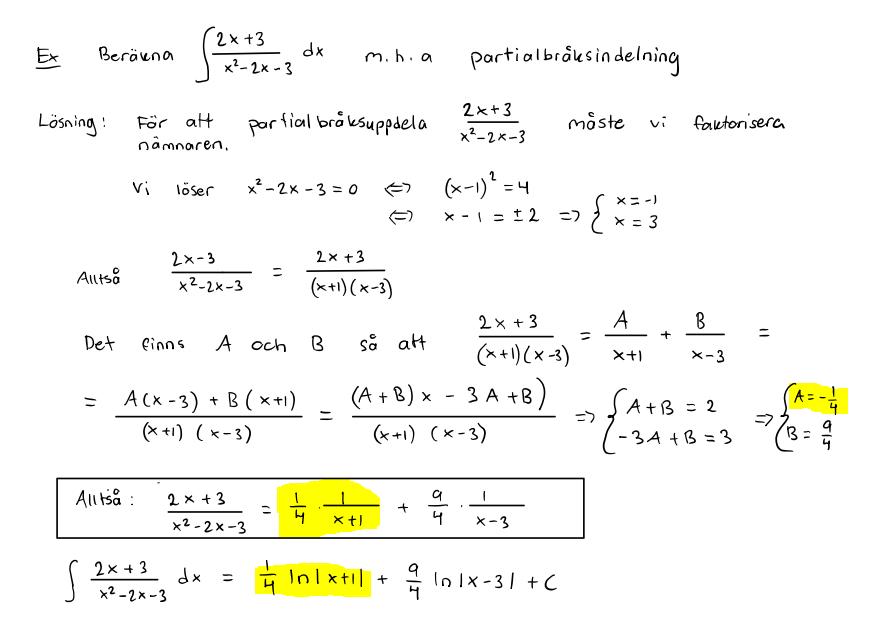 Ex Beräkna ∫ (2x+3)/(x²-2x-3) dx m.h.a partialbråksindelning
Lösning: För att partialbråksuppdela (2x+3)/(x²-2x-3) måste vi faktorisera
nämnaren.
Vi löser x²-2x-3=0 <=> (x-1)²=4
<=> x-1=±2 => { x=-1
x=3
Alltså (2x-3)/(x²-2x-3) = (2x+3)/((x+1)(x-3))
Det finns A och B så att (2x+3)/((x+1)(x-3)) = A/(x+1) + B/(x-3) =
= (A(x-3)+B(x+1))/((x+1)(x-3)) = ((A+B)x - 3A+B)/((x+1)(x-3)) => { A+B=2 => { A=-1/4
-3A+B=3 B=9/4
Alltså: (2x+3)/(x²-2x-3) = 1/4 · 1/(x+1) + 9/4 · 1/(x-3)
∫ (2x+3)/(x²-2x-3) dx = 1/4 ln|x+1| + 9/4 ln|x-3| + C